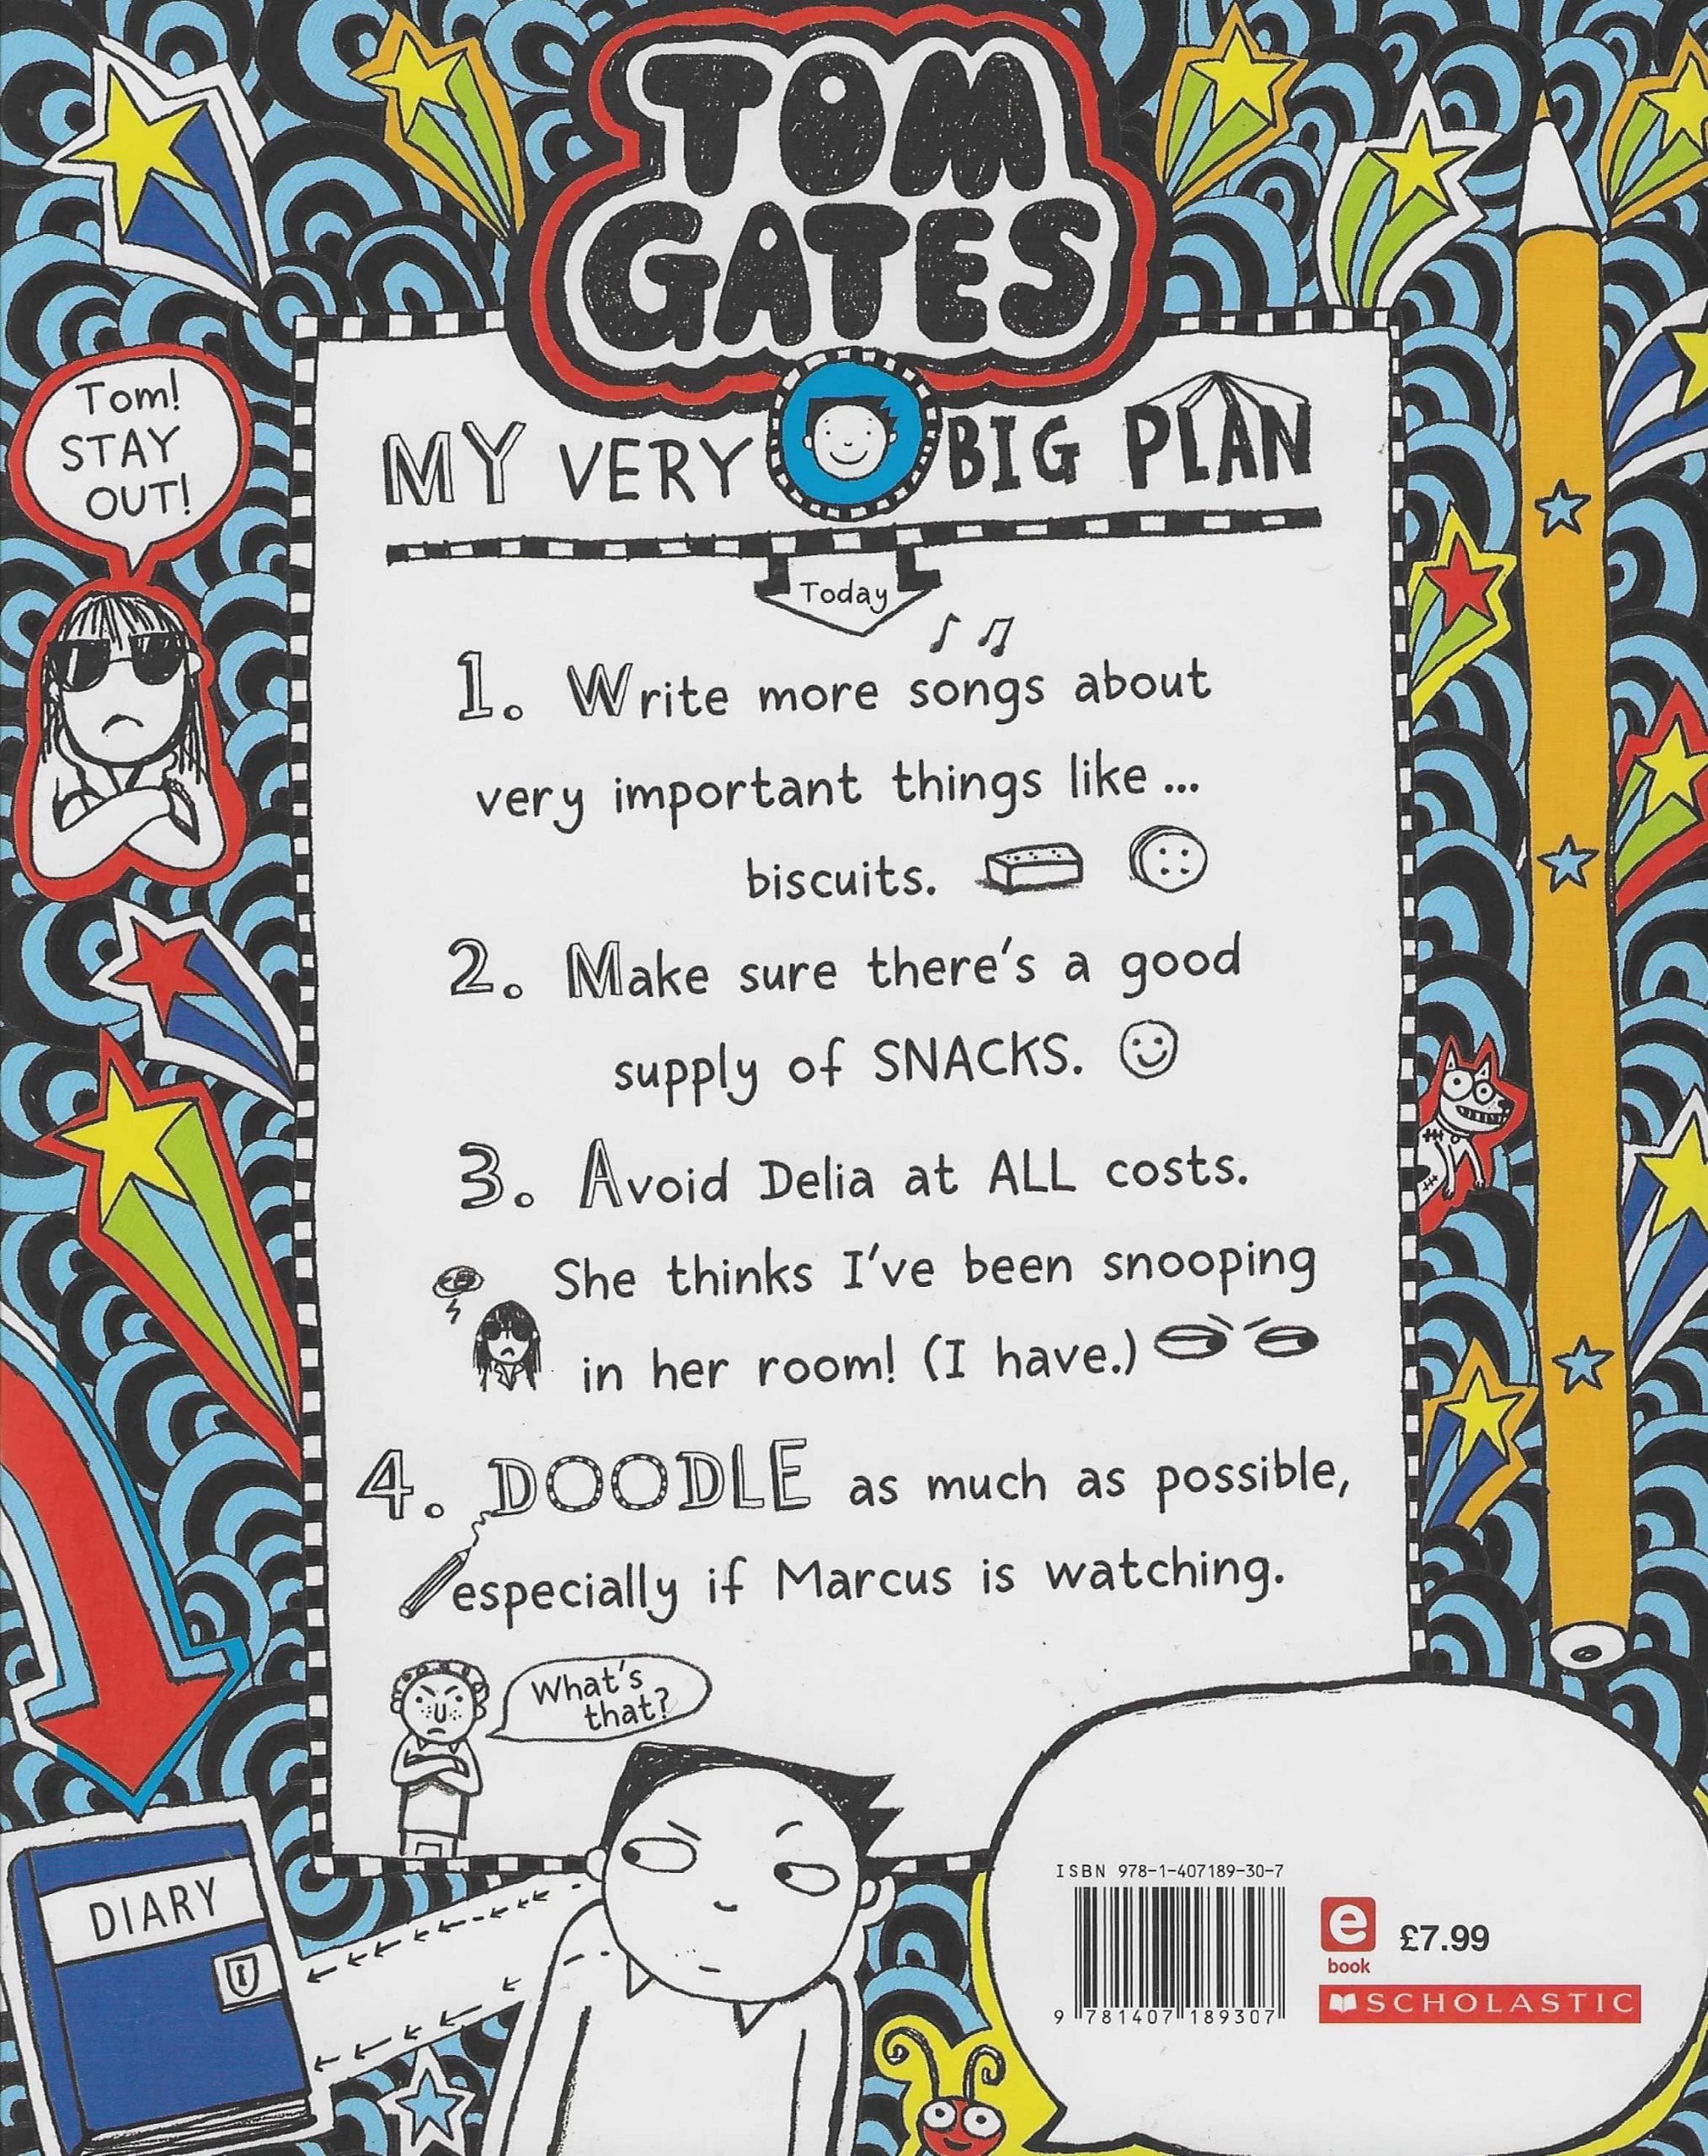 TOM
GATES
Tom!
STAY
OUT!
MY VERY BIG PLAN
Today
1. Write more songs about
very important things like ...
biscuits.
2. Make sure there's a good
supply of SNACKS.
3. Avoid Delia at ALL costs.
She thinks I've been snooping
in her room! (I have.)
4. DOODLE as much as possible,
especially if Marcus is watching.
What's
that?
DIARY
ISBN 978-1-407189-30-7
9 781407 189307
e
book
£7.99
SCHOLASTIC